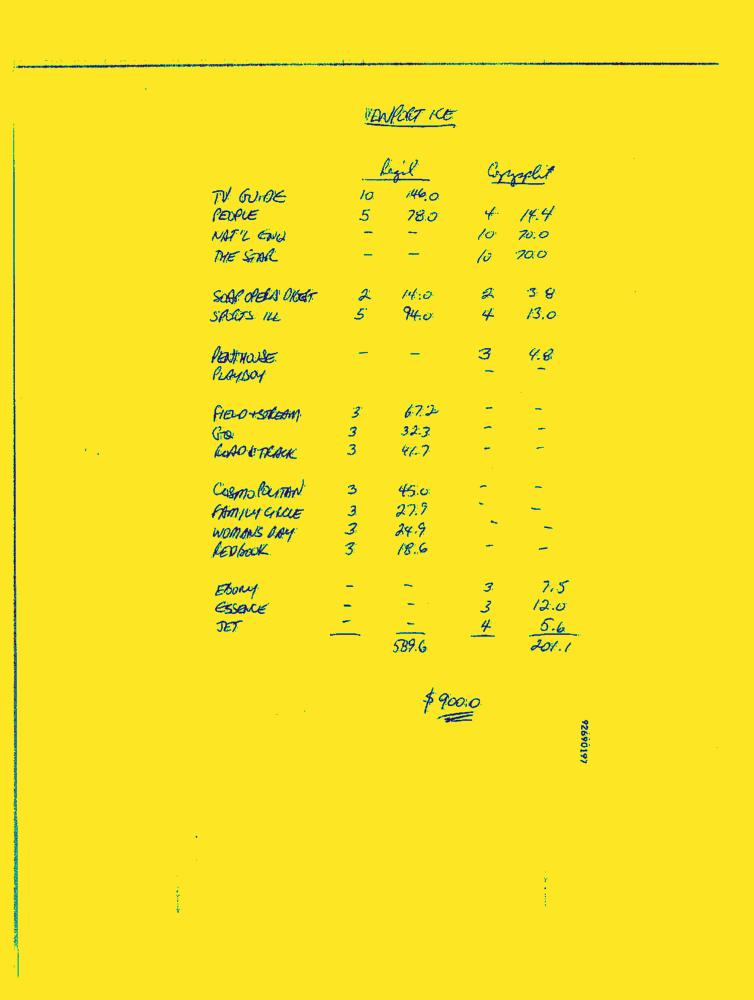 NEWPORT ICE
Reg'l Copysplit
TV GUIDE 10 146.0
PEOPLE 5 78.0 4 14.4
NAT'L ENQ - - 10 70.0
THE STAR - - 10 70.0
SOAP OPERA DIGEST 2 14.0 2 3.8
SPORTS ILL 5 94.0 4 13.0
PENTHOUSE - - 3 4.8
PLAYBOY - -
FIELD + STREAM 3 67.2 - -
GQ 3 32.3 - -
ROAD & TRACK 3 41.7 - -
COSMOPOLITAN 3 45.0 - -
FAMILY CIRCLE 3 27.9 - -
WOMANS DAY 3 24.9 - -
REDBOOK 3 18.6 - -
EBONY - - 3 7.5
ESSENCE - - 3 12.0
JET - - 4 5.6
589.6 201.1
$900.0
92690197